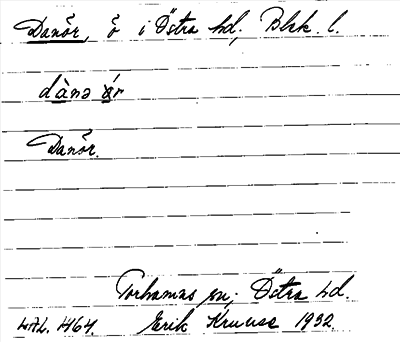 Danör, ö i Östra hd, Blek. l.
dànǝ ár
Danör.
Torhamns sn; Östra hd.
LAL. 1464. Erik Kruuse 1932